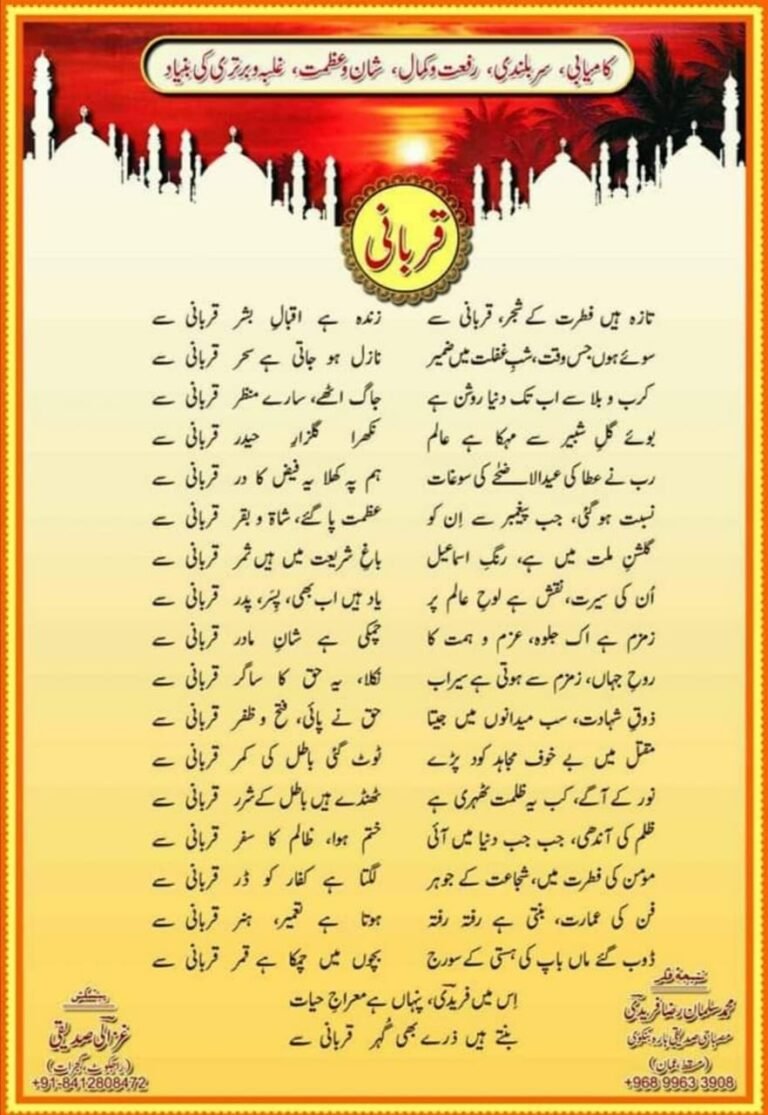 کامیابی، سربلندی، رفعت وکمال، شان وعظمت، غلبہ وبرتری کی بنیاد
قربانی
تازہ ہیں فطرت کے شجر، قربانی سے زندہ ہے اقبالِ بشر قربانی سے
سوئے ہوں جس وقت، شبِ غفلت میں ضمیر نازل ہو جاتی ہے سحر قربانی سے
کرب و بلا سے اب تک دنیا روشن ہے جاگ اٹھے، سارے منظر قربانی سے
بوئے گلِ شبیر سے مہکا ہے عالم نکھرا گلزارِ حیدر قربانی سے
رب نے عطا کی عیدالاضحٰے کی سوغات ہم پہ کھلا یہ فیض کا در قربانی سے
نسبت ہوگئی، جب پیغمبر سے اِن کو عظمت پا گئے، شاۃ و بقر قربانی سے
گلشنِ ملت میں ہے، رنگِ اسماعیل باغِ شریعت میں ہیں ثمر قربانی سے
اُن کی سیرت، نقش ہے لوحِ عالم پر یاد ہیں اب بھی، پِسَر، پدر قربانی سے
زمزم ہے اک جلوہ، عزم و ہمت کا چمکی ہے شانِ مادر قربانی سے
روحِ جہاں، زمزم سے ہوتی ہے سیراب نکلا، یہ حق کا ساگر قربانی سے
ذوقِ شہادت، سب میدانوں میں جیتا حق نے پائی، فتح و ظفر قربانی سے
مقتل میں بے خوف مجاہد کود پڑے ٹوٹ گئی باطل کی کمر قربانی سے
نور کے آگے، کب یہ ظلمت ٹھہری ہے ٹھنڈے ہیں باطل کے شرر قربانی سے
ظلم کی آندھی، جب جب دنیا میں آئی ختم ہوا، ظالم کا سفر قربانی سے
مؤمن کی فطرت میں، شجاعت کے جوہر لگتا ہے کفار کو ڈر قربانی سے
فن کی عمارت، بنتی ہے رفتہ رفتہ ہوتا ہے تعمیر، ہنر قربانی سے
ڈوب گئے ماں باپ کی ہستی کے سورج بچوں میں چمکا ہے قمر قربانی سے
اِس میں فریدیؔ، پنہاں ہے معراجِ حیات
بنتے ہیں ذرے بھی گُہر قربانی سے
نتیجۂ فکر
محمد سلمان رضا فریدی
مصباحی صدیقی بارہ بنکوی
(مسقط، عمان)
+968 9963 3908
پیشکش
غزالی صدیقی
(راجکوٹ، گجرات)
+91-8412808472